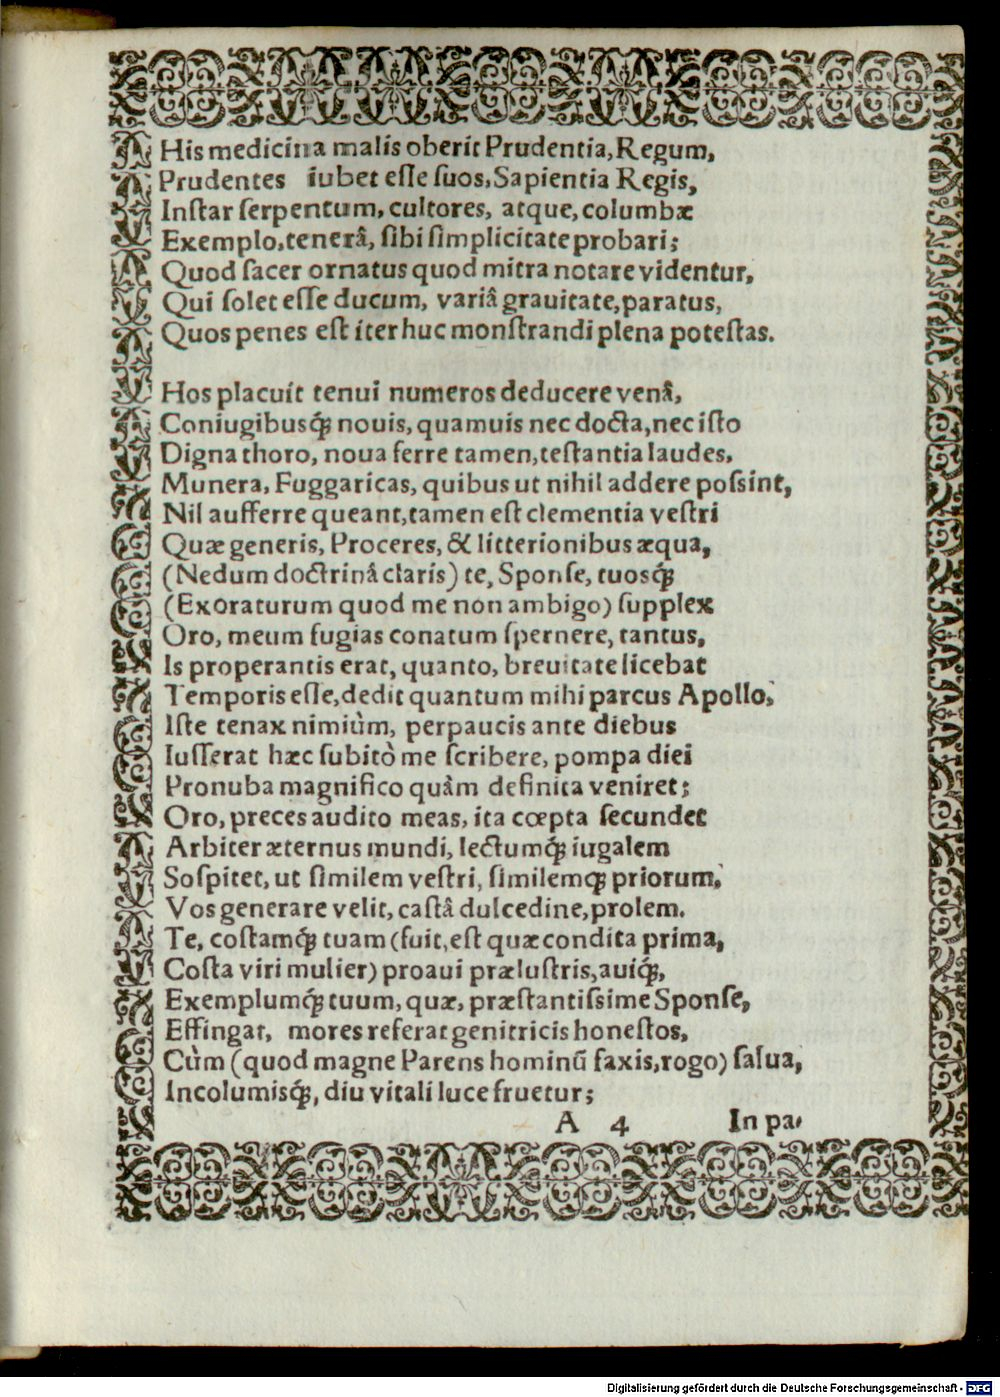 His medicina malis oberit Prudentia, Regum,
Prudentes iubet esse suos, Sapientia Regis,
Instar serpentum, cultores, atque, columbæ
Exemplo, tenerâ, sibi simplicitate probari;
Quod sacer ornatus quod mitra notare videntur,
Qui solet esse ducum, variâ grauitate, paratus,
Quos penes est iter huc monstrandi plena potestas.
Hos placuit tenui numeros deducere venâ,
Coniugibusq́; nouis, quamuis nec docta, nec isto
Digna thoro, noua ferre tamen, testantia laudes.
Munera, Fuggaricas, quibus ut nihil addere possint,
Nil aufferre queant, tamen est clementia vestri
Quæ generis, Proceres, & litterionibus æqua,
(Nedum doctrinâ claris) te, Sponse, tuosq́;
(Exoraturum quod me non ambigo) supplex
Oro, meum fugias conatum spernere, tantus,
Is properantis erat, quanto, breuitate licebat
Temporis esse, dedit quantum mihi parcus Apollo.
Iste tenax nimiùm, perpaucis ante diebus
Iusserat hæc subitò me scribere, pompa diei
Pronuba magnifico quàm definita veniret;
Oro, preces audito meas, ita cœpta secundet
Arbiter æternus mundi, lectumq́; iugalem
Sospitet, ut similem vestri, similemq́; priorum,
Vos generare velit, castâ dulcedine, prolem.
Te, costamq́; tuam (fuit, est quæ condita prima,
Costa viri mulier) proaui prælustris, auiq́;,
Exemplumq́; tuum, quæ, præstantissime Sponse,
Effingat, mores referat genitricis honestos,
Cùm (quod magne Parens hominũ faxis, rogo) salua,
Incolumisq́;, diu vitali luce fruetur;
A 4 In pa-
Digitalisierung gefördert durch die Deutsche Forschungsgemeinschaft - DFG